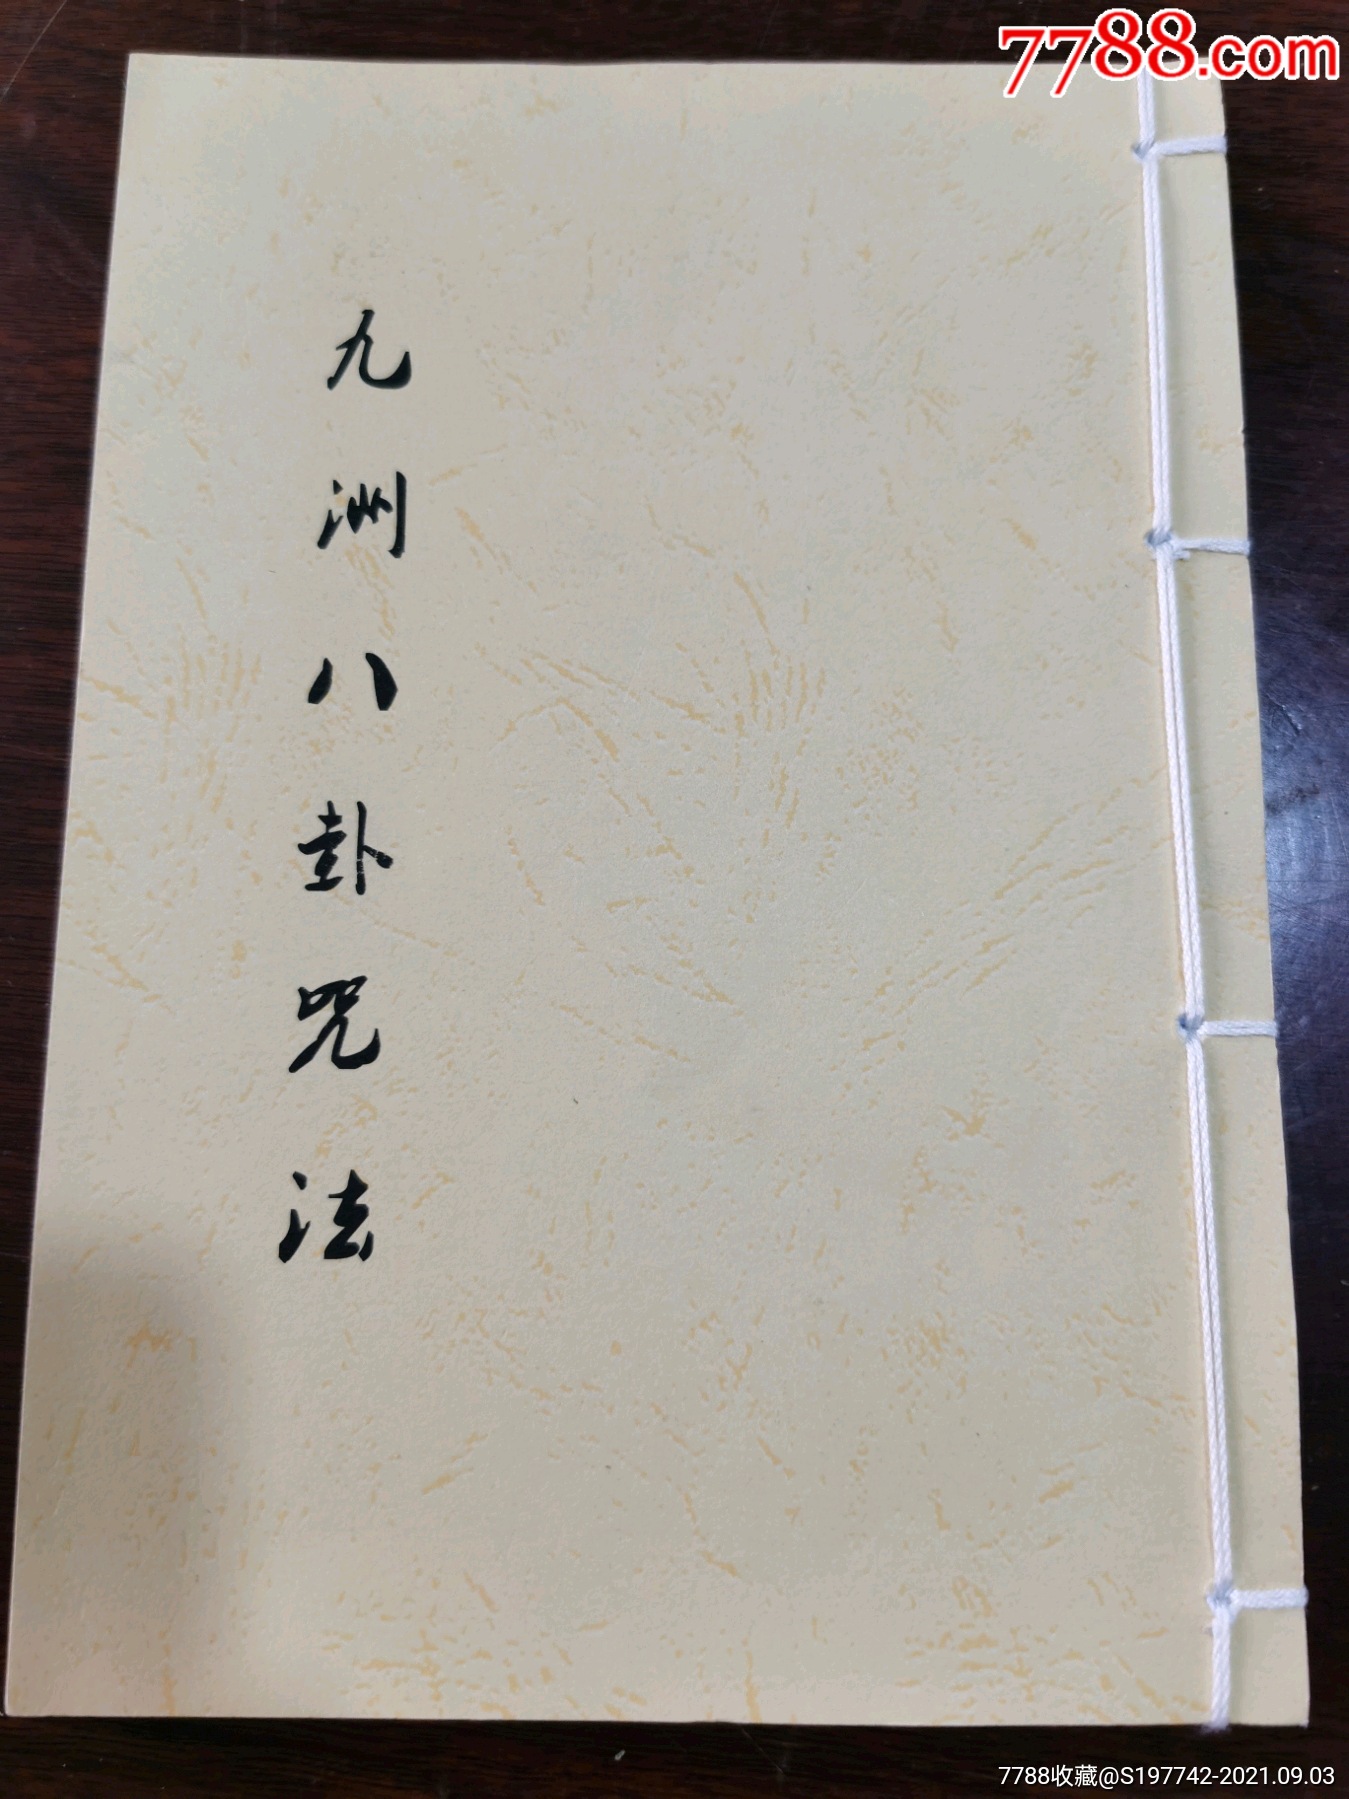 7788.com
九洲八卦咒法
7788收藏@S197742-2021.09.03